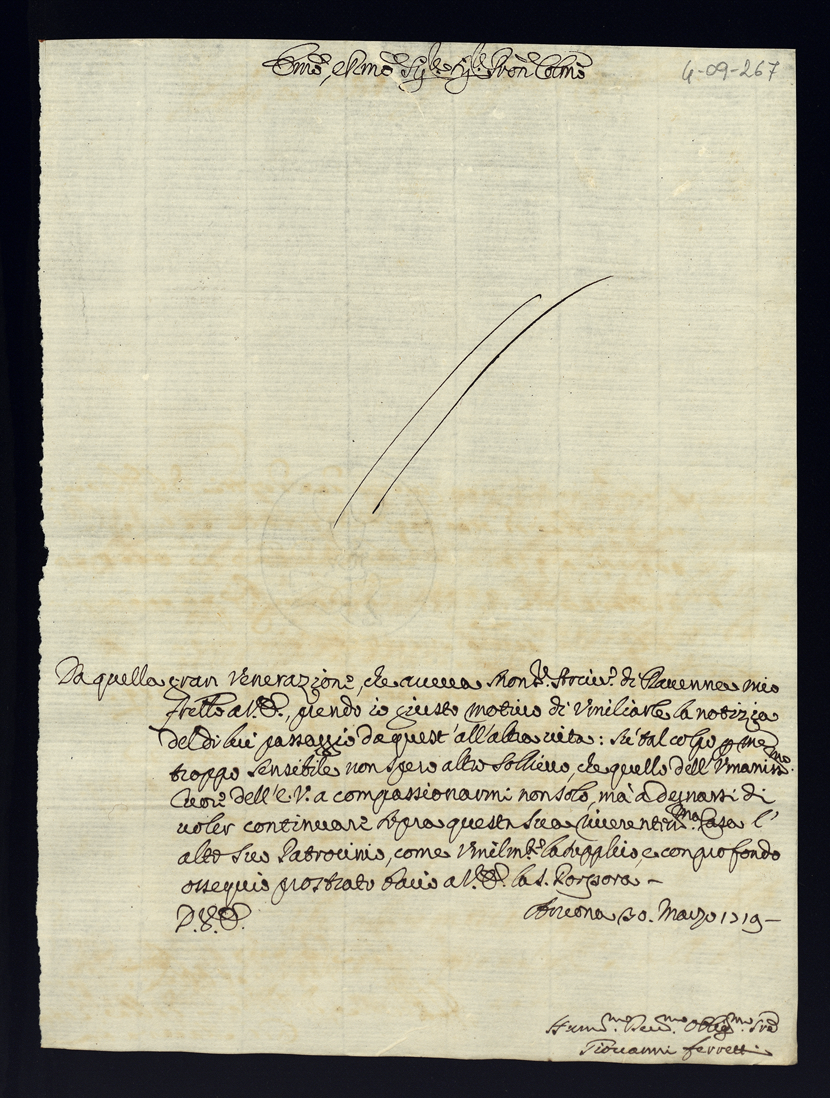 Em̃o, e Rm̃o Sig.r Sig.r Pron Colm̃o
4-09-267
Da quella gran Venerazione, che aueua Mons.r Arciu.o di Rauenna mio
Frello a V.E., prendo io giusto motiuo di Vmiliarle la notizia
del di lui passaggio da quest'all'altra uita: Sù tal colpo p me
troppo sensibile non spero altro Sollieuo, che quello dell'Vmaniss.mo
Cuore dell'E.V. a compassionarmi non solo, mà a degnarsi di
uoler continuare sopra questa sua riuerentis.ma Casa l'
alto suo Patrocinio, come Vmilm.te la supplico, e con profondo
ossequio prostrato bacio a V.E. la S. Porpora –
D.V.E. Ancona 30. Marzo 1719 –
Hum.mo Deu.mo Oblig.mo Sre
Giouanni Ferretti